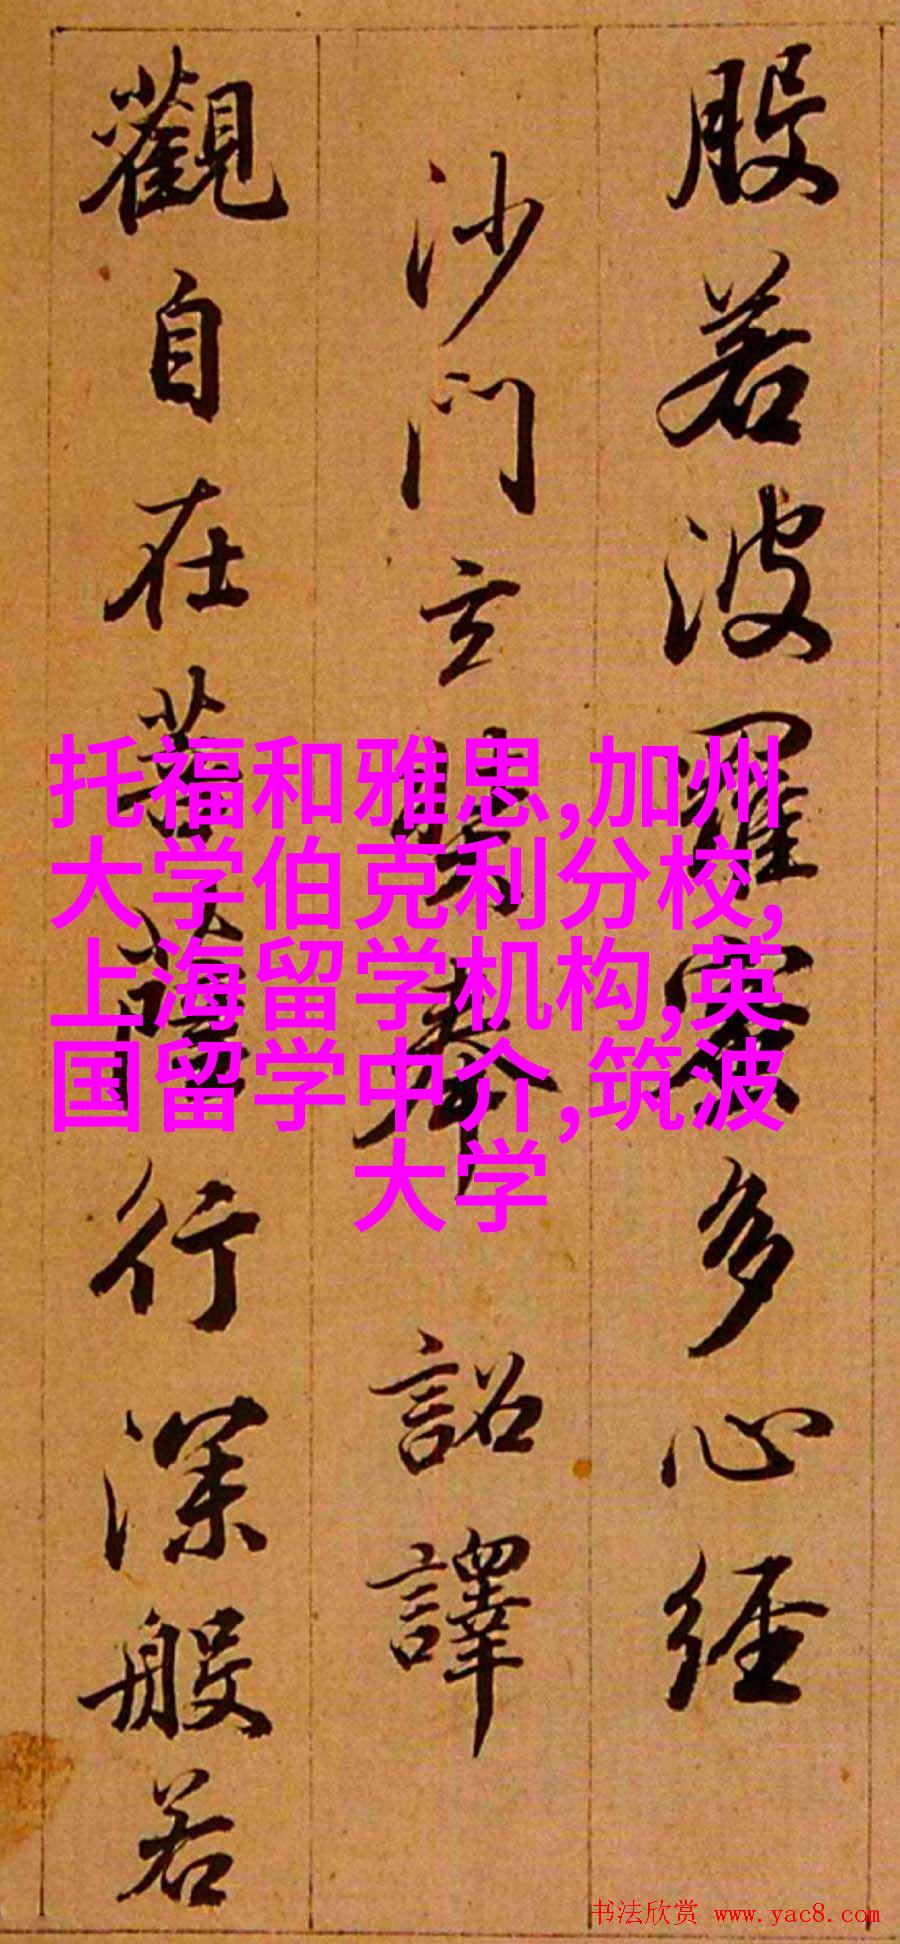 般若波羅蜜多心經
沙門玄奘奉 詔譯
觀自在菩薩行深般若
托福和雅思,加州
大学伯克利分校,
上海留学机构,英
国留学中介,筑波
大学
书法欣赏 www.yac8.com